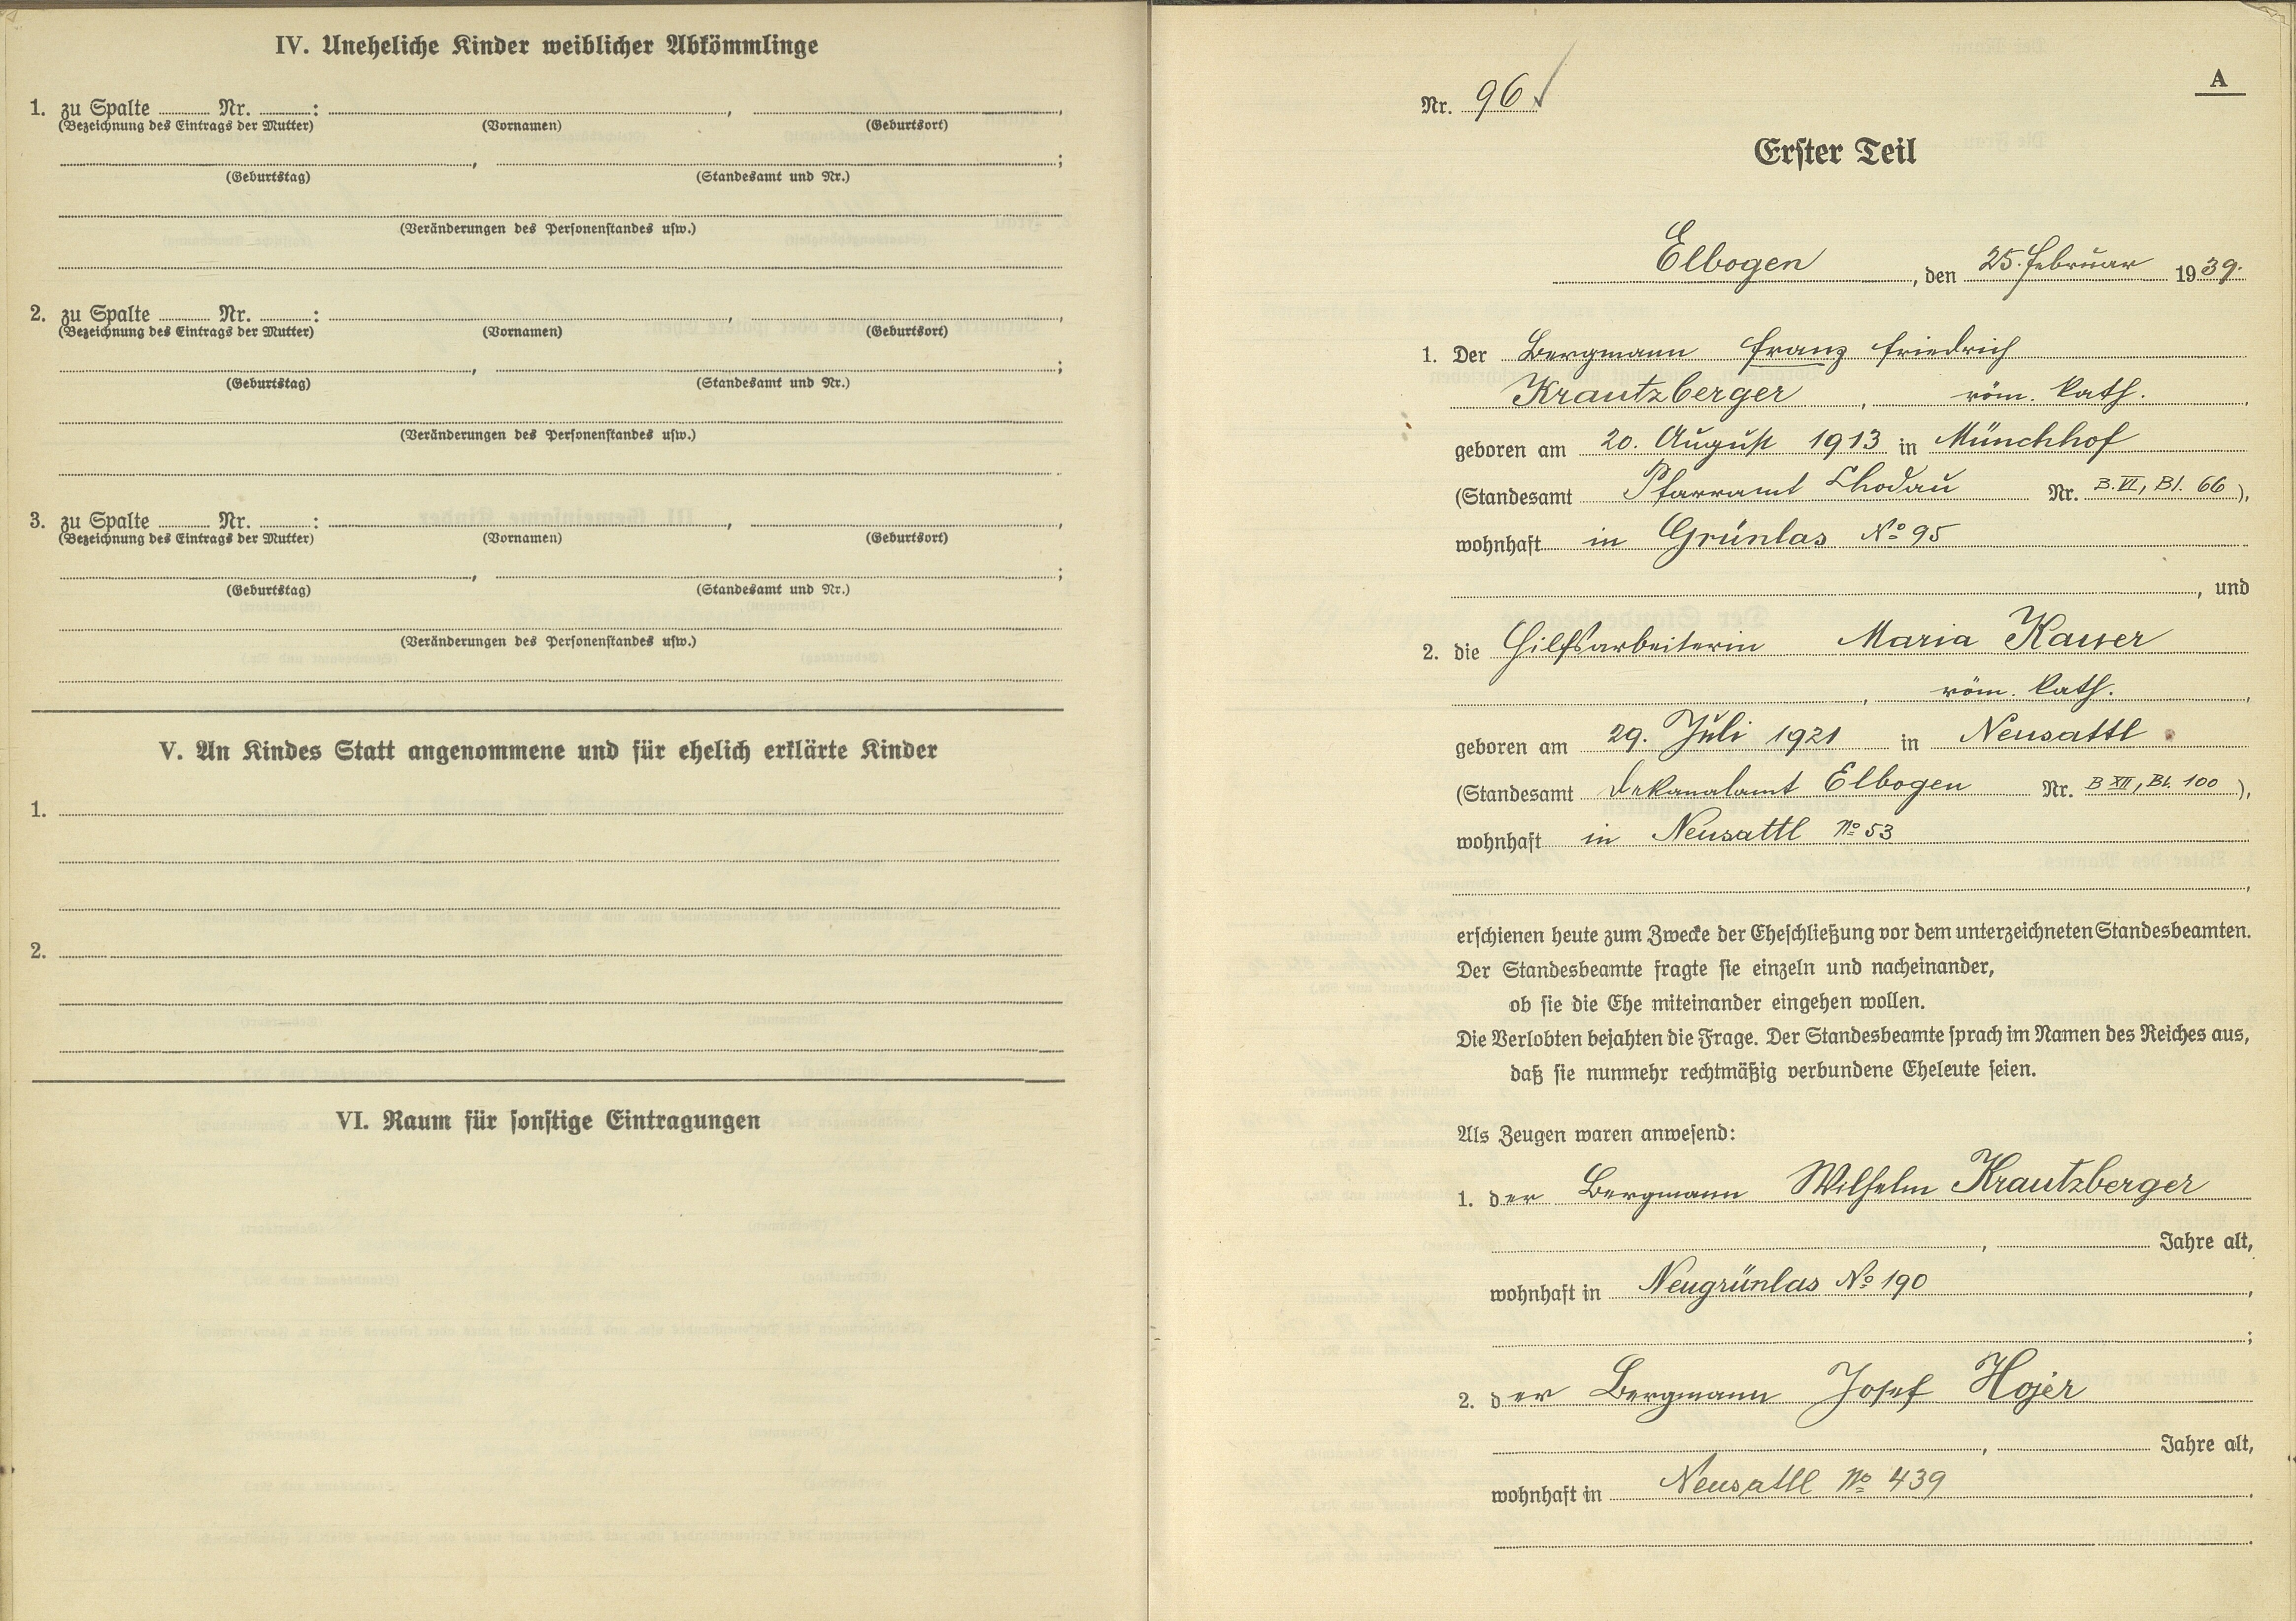 IV. Uneheliche Kinder weiblicher Abkömmlinge
1. zu Spalte ........ Nr. ........: ........, ........,
(Bezeichnung des Eintrags der Mutter) (Vornamen) (Geburtsort)
........, ........;
(Geburtstag) (Standesamt und Nr.)
(Veränderungen des Personenstandes usw.)
2. zu Spalte ........ Nr. ........: ........, ........,
(Bezeichnung des Eintrags der Mutter) (Vornamen) (Geburtsort)
........, ........;
(Geburtstag) (Standesamt und Nr.)
(Veränderungen des Personenstandes usw.)
3. zu Spalte ........ Nr. ........: ........, ........,
(Bezeichnung des Eintrags der Mutter) (Vornamen) (Geburtsort)
........, ........;
(Geburtstag) (Standesamt und Nr.)
(Veränderungen des Personenstandes usw.)
V. An Kindes Statt angenommene und für ehelich erklärte Kinder
1.
2.
VI. Raum für sonstige Eintragungen
A
Nr. 96
Erster Teil
Elbogen, den 25. Februar 1939.
1. Der Bergmann Franz Friedrich
Krautzberger, röm. kath.,
geboren am 20. August 1913 in Münchhof
(Standesamt Pfarramt Chodau Nr. B. VI, Bl. 66),
wohnhaft in Grünlas No 95
, und
2. die Hilfsarbeiterin Maria Kauer
, röm. kath.,
geboren am 29. Juli 1921 in Neusattl
(Standesamt Dekanalamt Elbogen Nr. B XII, Bl. 100),
wohnhaft in Neusattl No 53
,
erschienen heute zum Zwecke der Eheschließung vor dem unterzeichneten Standesbeamten.
Der Standesbeamte fragte sie einzeln und nacheinander,
ob sie die Ehe miteinander eingehen wollen.
Die Verlobten bejahten die Frage. Der Standesbeamte sprach im Namen des Reiches aus,
daß sie nunmehr rechtmäßig verbundene Eheleute seien.
Als Zeugen waren anwesend:
1. der Bergmann Wilhelm Krautzberger
, ........ Jahre alt,
wohnhaft in Neugrünlas No 190,
;
2. der Bergmann Josef Hojer
, ........ Jahre alt,
wohnhaft in Neusattl No 439.